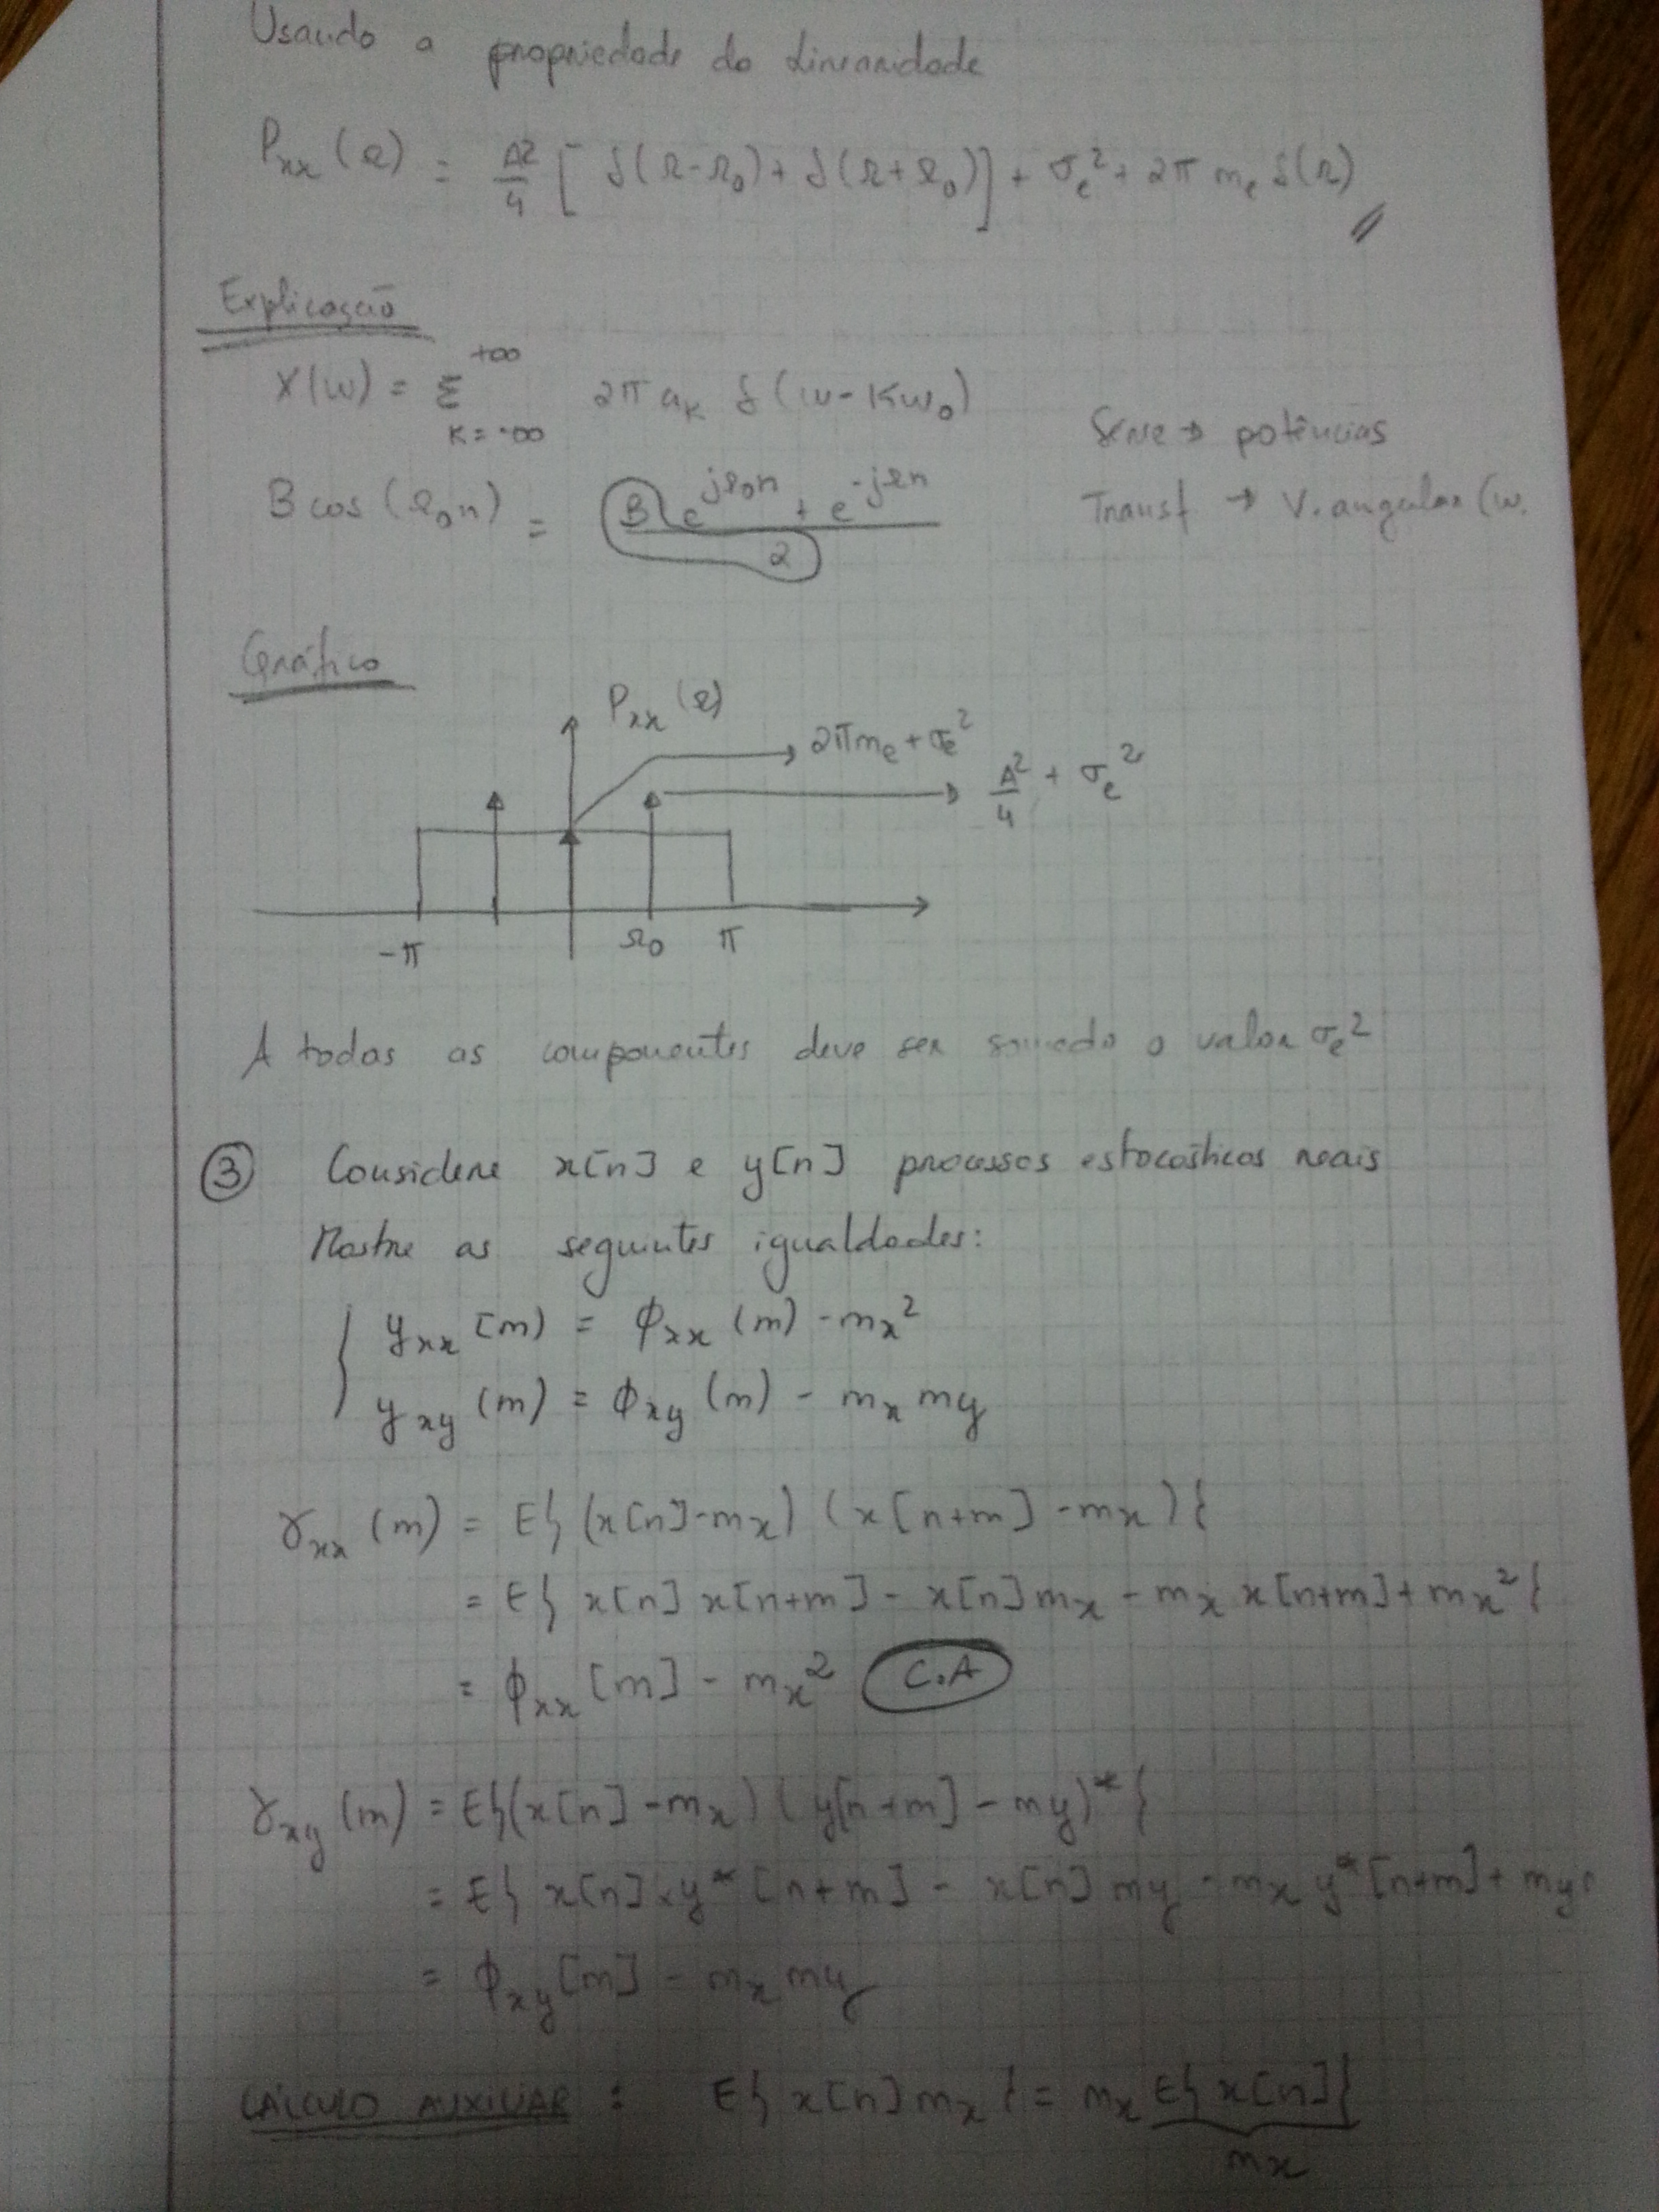 Usando a propriedade da Linearidade
Pxx(Ω) = A²/4 [ δ(Ω-Ω₀) + δ(Ω+Ω₀)] + σe² + 2π me δ(Ω)
Explicação
X(w) = Σ +∞ K=-∞ 2π aK δ(w-Kw₀)
Série → potências
B cos(Ω₀n) = B e^jΩ₀n + e^-jΩn / 2
Transf → V. angular (w.
Gráfico
Pxx(Ω)
2πme + σe²
A²/4 + σe²
-π Ω₀ π
A todas as componentes deve ser somado o valor σe²
③ Considere x[n] e y[n] processos estocásticos reais
Mostre as seguintes igualdades:
{ γxx[m) = ϕxx(m) - mx²
γxy(m) = ϕxy(m) - mx my
γxx(m) = E{ (x[n]-mx) (x[n+m] - mx) }
= E{ x[n] x[n+m] - x[n] mx - mx x[n+m] + mx² }
= ϕxx[m] - mx² C.A
γxy(m) = E{(x[n] - mx) (y[n+m] - my)* }
= E{ x[n] . y*[n+m] - x[n] my - mx y*[n+m] + my
= ϕxy[m] - mx my
CÁLCULO AUXILIAR : E{ x[n] mx } = mx E{ x[n] }
mx